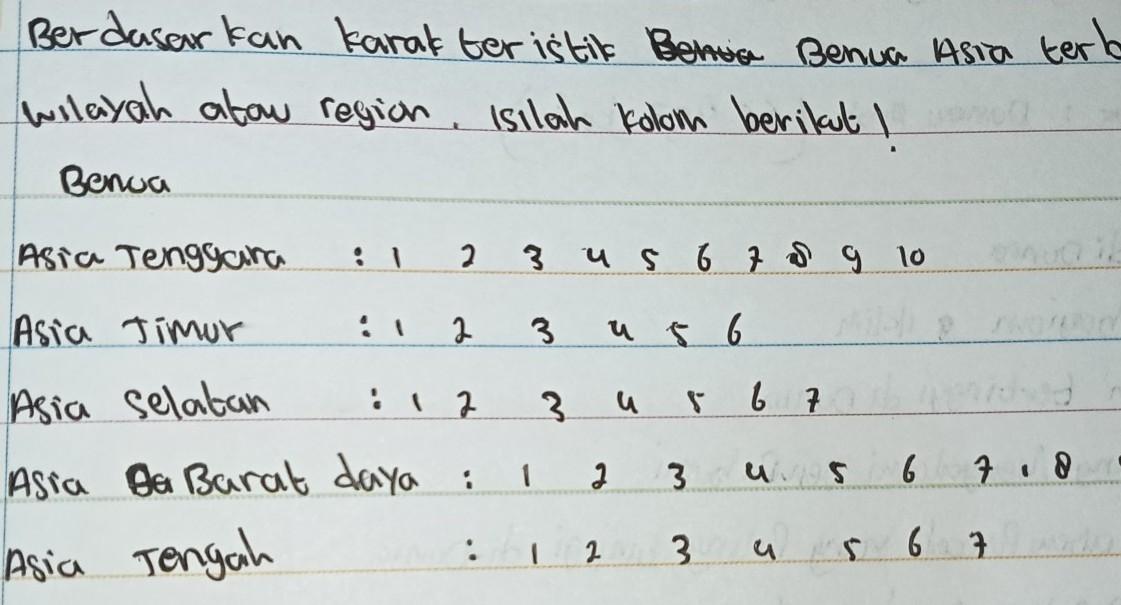 Berdasarkan karakteristik Benua Asia
wilayah atau region. Isilah kolom berikut!
Benua
Asia Tenggara : 1 2 3 4 5 6 7 8 9 10
Asia Timur : 1 2 3 4 5 6
Asia Selatan : 1 2 3 4 5 6 7
Asia Barat daya : 1 2 3 4 5 6 7 . 8
Asia Tengah : 1 2 3 4 5 6 7